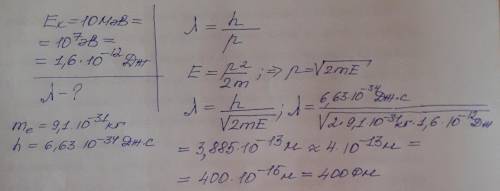 Eк = 10 МэВ =
= 10⁷ эВ =
= 1,6·10⁻¹² Дж
λ - ?
mₑ = 9,1·10⁻³¹ кг
h = 6,63·10⁻³⁴ Дж·с
λ = h/p
E = p²/2m ; ⇒ p = √2mE ;
λ = h/√2mE ; λ = 6,63·10⁻³⁴ Дж·с/√2·9,1·10⁻³¹ кг·1,6·10⁻¹² Дж
= 3,885·10⁻¹³ м ≈ 4·10⁻¹³ м =
= 400·10⁻¹⁵ м = 400 Фм